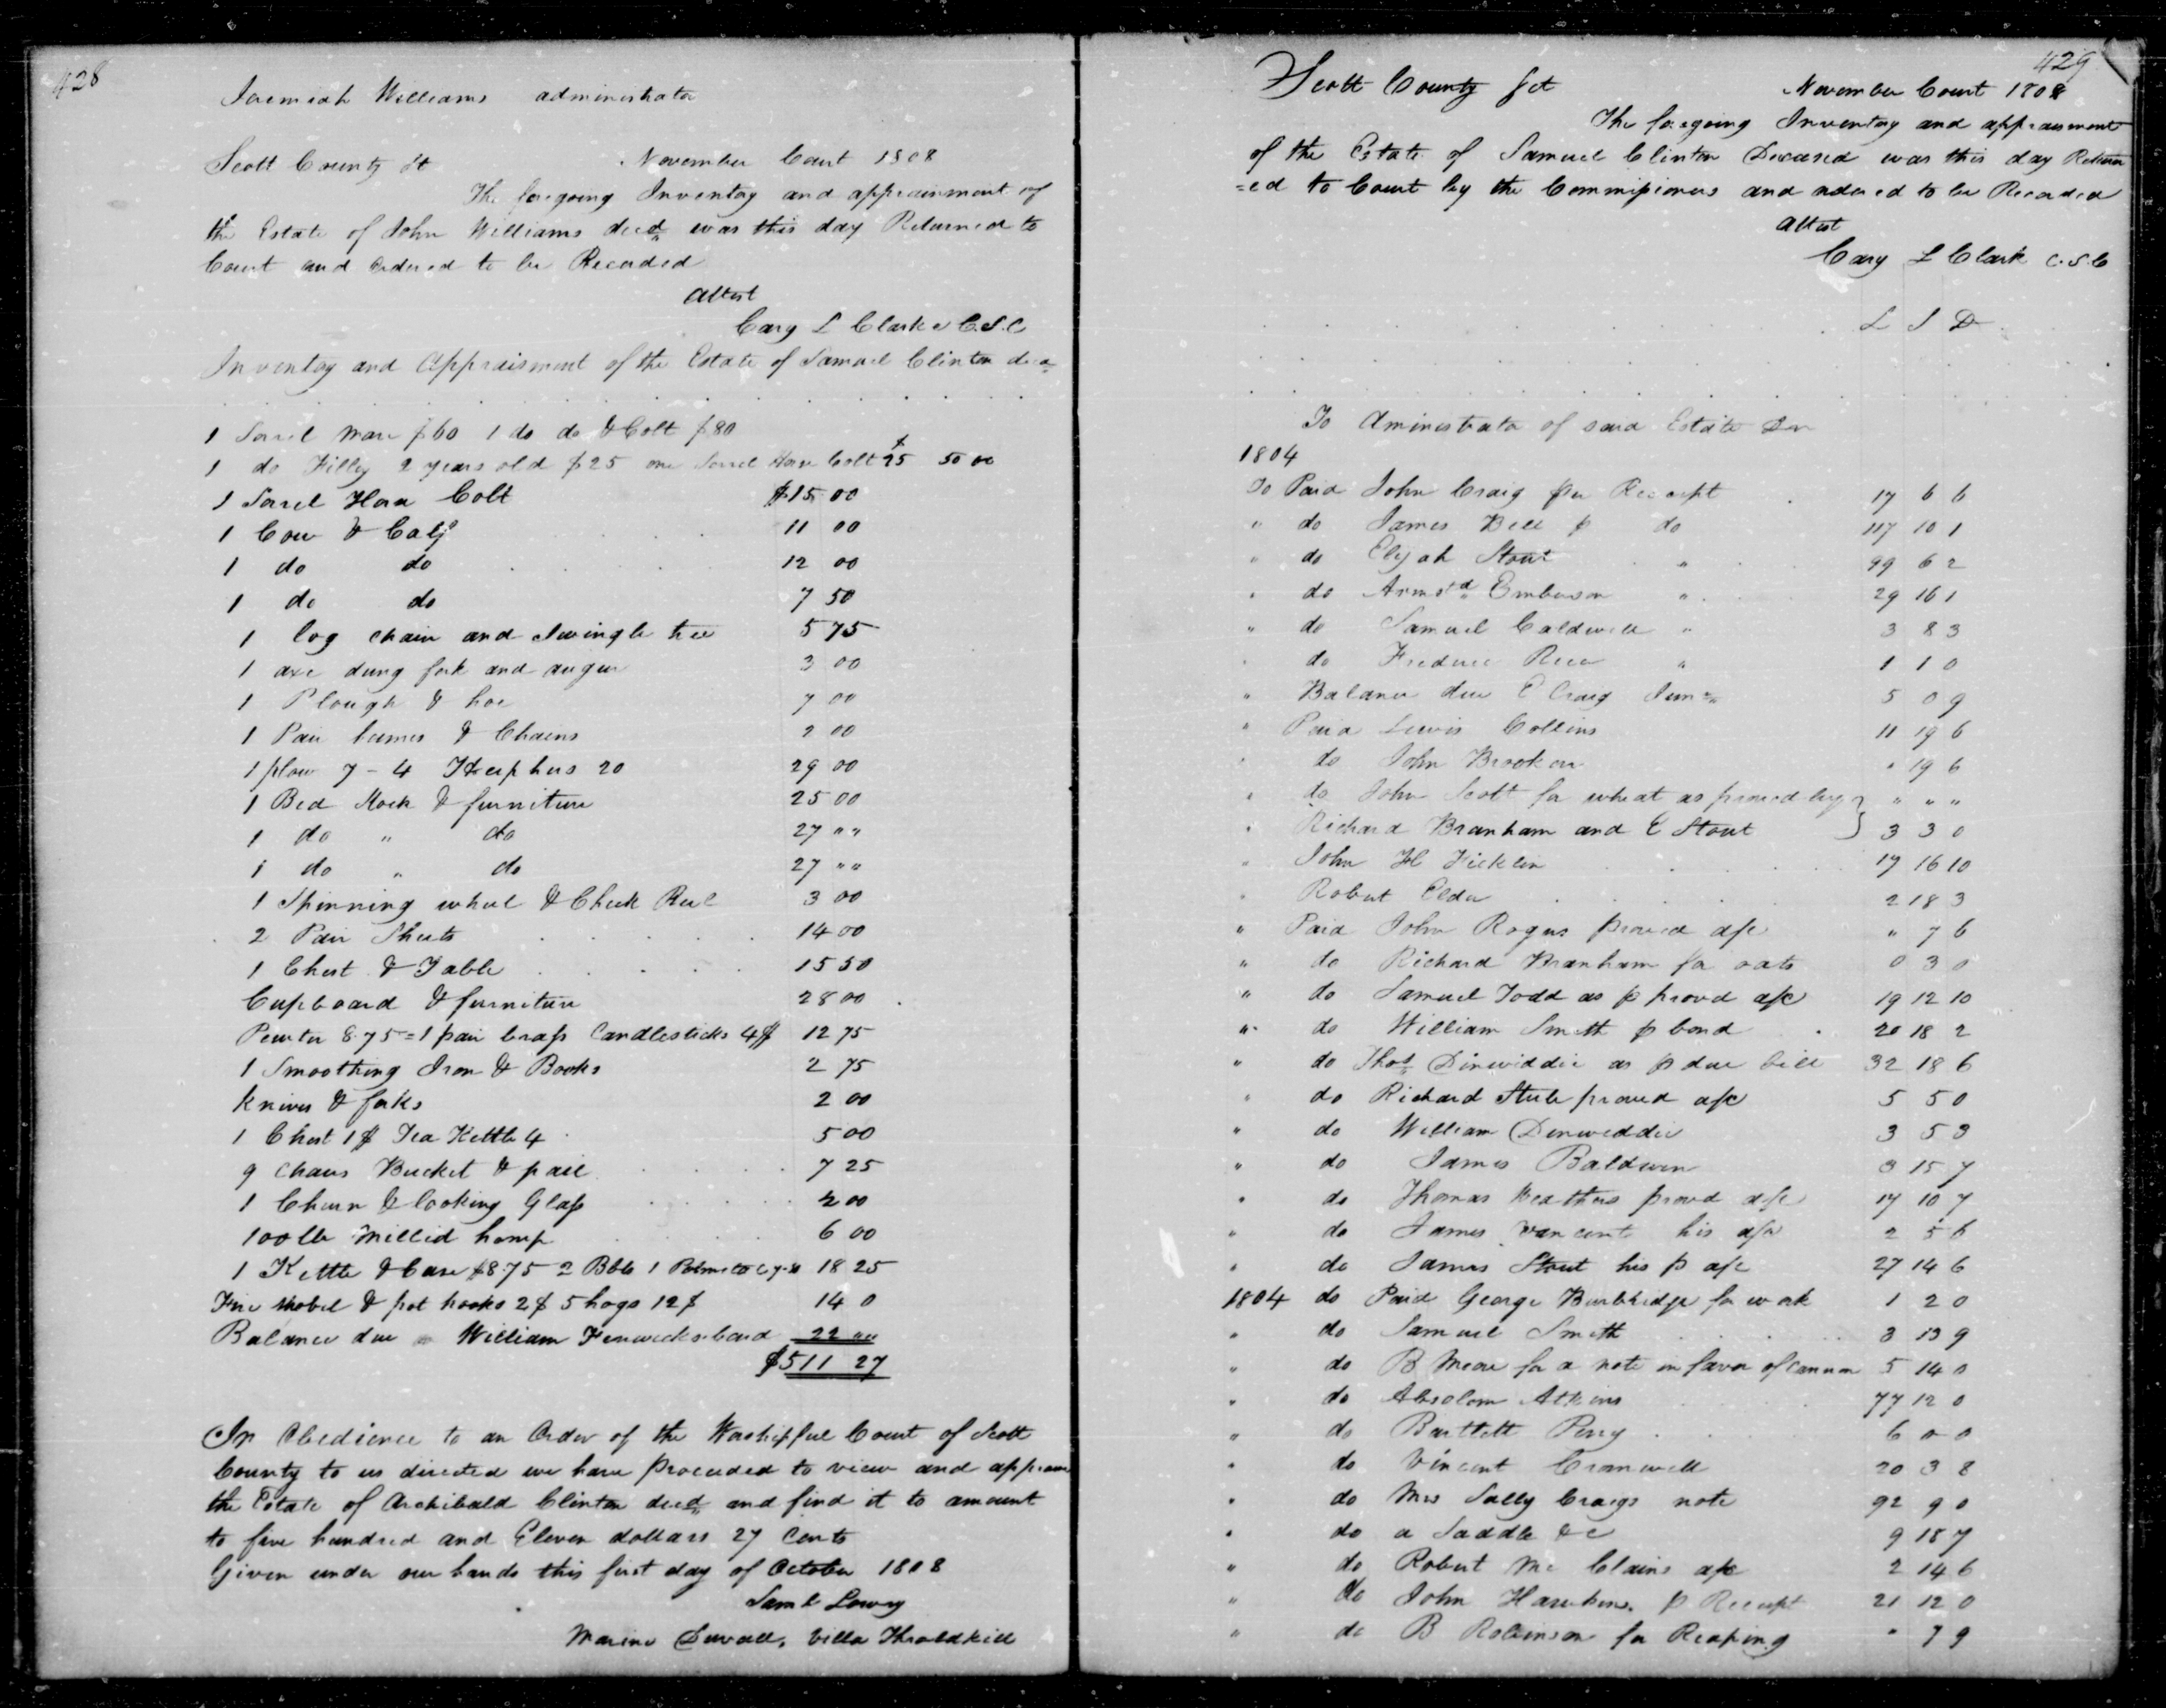 428
Jeremiah Williams administrator
Scott County Sct November Court 1808
The foregoing Inventory and appraisment of
the Estate of John Williams decd was this day Returned to
Court and Ordered to be Recorded
Attest
Cary L Clarke C.S.C
Inventory and Appraisment of the Estate of Samuel Clinton decd
1 Sorrel Mare $60 1 do do & Colt $80
1 do Filley 2 years old $25 one Sorrel Horse Colt $25 50 00
1 Sorrel Horse Colt $15 00
1 Cow & Calf 11 00
1 do do 12 00
1 do do 7 50
1 log chain and Swingle tree 5 75
1 axe dung fork and augur 3 00
1 Plough & hoe 7 00
1 Pair hames & Chains 2 00
1 plow 7 - 4 Heiphers 20 29 00
1 Bed Stock & furniture 25 00
1 do " do 27 " "
1 do " do 27 " "
1 Spinning wheel & Check Reel 3 00
2 Pair Sheets 14 00
1 Chest & Table 15 50
Cupboard & furniture 28 00
Pewter 8.75 = 1 pair brass Candlesticks 4$ 12 75
1 Smoothing Iron & Books 2 75
Knives & forks 2 00
1 Chest 1$ Tea Kettle 4 5 00
9 Chairs Bucket & pail 7 25
1 Churn & looking Glass 2 00
100 lb Milled hemp 6 00
1 Kettle & Case $8.75 2 Bbls 1 18 25
Fire Shovel & pot hooks 2$ 5 hogs 12$ 14 0
Balance due William Fenwicks bond 22 " "
$511 27
In Obedience to an Order of the Worshipful Court of Scott
County to us directed we have proceeded to view and appraise
the Estate of Archibald Clinton decd and find it to amount
to five hundred and Eleven dollars 27 Cents
Given under our hands this first day of October 1808
Saml Lowry
Marine Duvall, Villa Throldkill
429
Scott County Sct November Court 1808
The foregoing Inventory and appraisment
of the Estate of Samuel Clinton Deceased was this day Return
=ed to Court by the Commissioners and ordered to be Recorded
Attest
Cary L Clark C.S.C
L S D
To Aministrator of said Estate Dr
1804
To Paid John Craig per Receipt 17 6 6
" do James Bell p do 117 10 1
" do Elijah Stout " 99 6 2
" do Armstd Emberson " 29 16 1
" do Samuel Caldwell " 3 8 3
" do Frederic Rice " 1 1 0
" Balance due E Craig Junr 5 0 9
" Paid Lewis Collins 11 19 6
" do John Brooken " 19 6
" do John Scott for wheat as proved by } " " "
" Richard Branham and E Stout } 3 3 0
" John H Ficklin 17 16 10
" Robert Elder 2 18 3
" Paid John Rogers proved a/c " 7 6
" do Richard Branham for oats 0 3 0
" do Samuel Todd as p proved a/c 19 12 10
" do William Smith p bond 20 18 2
" do Thos Dinwiddie as p due bill 32 18 6
" do Richard Steele proved a/c 5 5 0
" do William Dinwiddie 3 5 3
" do James Baldwin 3 15 7
" do Thomas Weathers proved a/c 17 10 7
" do James Vancent his a/c 2 5 6
" do James Stout his p a/c 27 14 6
1804 do Paid George Burbridge for work 1 2 0
" do Samuel Smith 3 13 9
" do B for a note in favor of 5 14 0
" do Absolom Atkins 77 12 0
" do Bartlett Perry 6 0 0
" do Vincent Cromwell 20 3 8
" do Mrs Sally Craigs note 92 9 0
" do a Saddle &c 9 18 7
" do Robert Mc Clains a/c 2 14 6
" do John Hawkins p Receipt 21 12 0
" do B Robinson for Reaping " 7 9